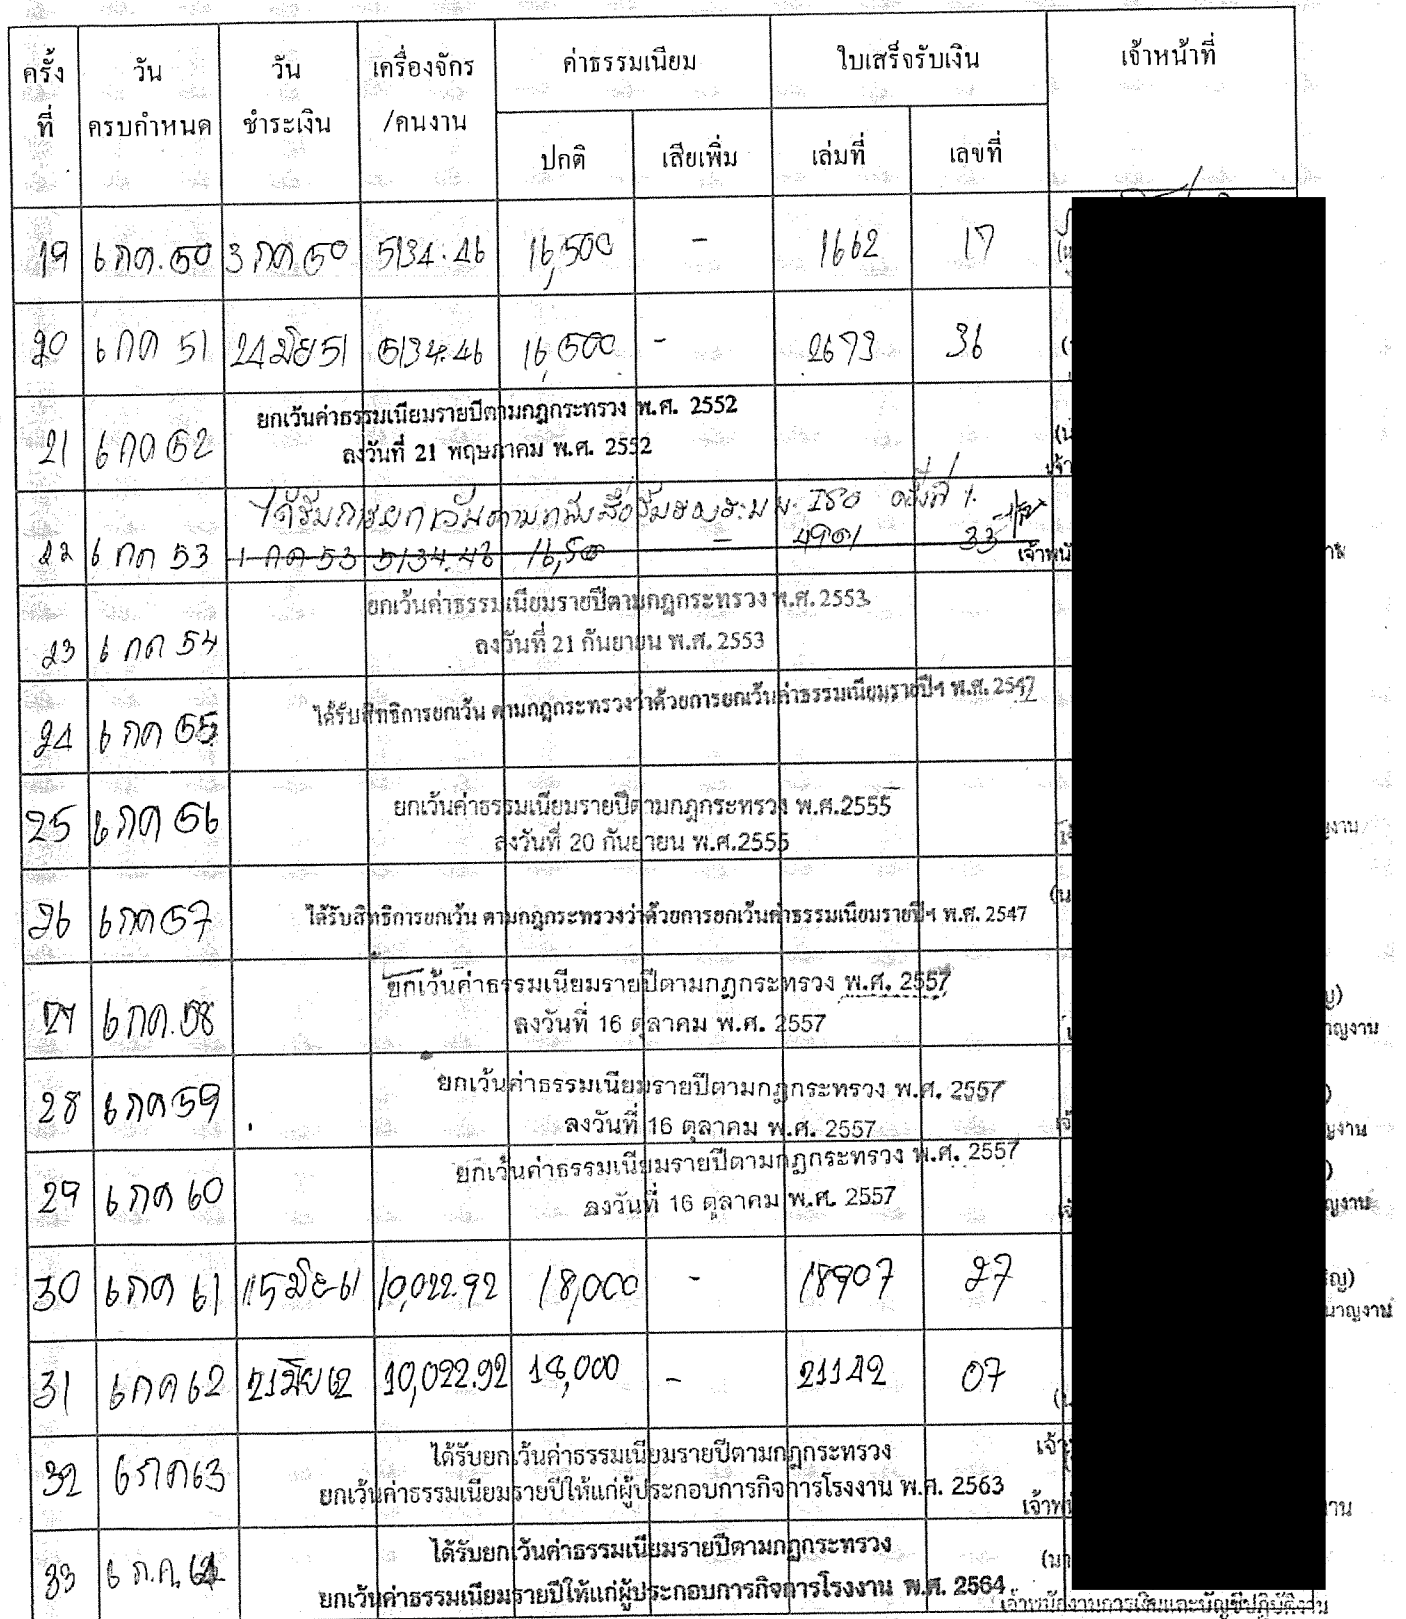 ครั้งที่ วันครบกำหนด วันชำระเงิน เครื่องจักร/คนงาน ค่าธรรมเนียม ใบเสร็จรับเงิน เจ้าหน้าที่
ปกติ เสียเพิ่ม เล่มที่ เลขที่
19 6 กค. 50 3 กค 50 5134.46 16,500 - 1662 17
20 6 กค 51 24 มิย 51 5134.46 16,500 - 2673 36
21 6 กค 52 ยกเว้นค่าธรรมเนียมรายปีตามกฎกระทรวง พ.ศ. 2552
ลงวันที่ 21 พฤษภาคม พ.ศ. 2552
ได้รับการยกเว้นตาม ISO ครั้งที่ 1.
22 6 กค 53 1 กค 53 5134.46 16,500 - 4961 33
23 6 กค 54 ยกเว้นค่าธรรมเนียมรายปีตามกฎกระทรวง พ.ศ. 2553
ลงวันที่ 21 กันยายน พ.ศ. 2553
24 6 กค 55 ได้รับสิทธิการยกเว้น ตามกฎกระทรวงว่าด้วยการยกเว้นค่าธรรมเนียมรายปีฯ พ.ศ. 2547
25 6 กค 56 ยกเว้นค่าธรรมเนียมรายปีตามกฎกระทรวง พ.ศ.2555
ลงวันที่ 20 กันยายน พ.ศ.2555
26 6 กค 57 ได้รับสิทธิการยกเว้น ตามกฎกระทรวงว่าด้วยการยกเว้นค่าธรรมเนียมรายปีฯ พ.ศ. 2547
27 6 กค. 58 ยกเว้นค่าธรรมเนียมรายปีตามกฎกระทรวง พ.ศ. 2557
ลงวันที่ 16 ตุลาคม พ.ศ. 2557
28 6 กค 59 ยกเว้นค่าธรรมเนียมรายปีตามกฎกระทรวง พ.ศ. 2557
ลงวันที่ 16 ตุลาคม พ.ศ. 2557
29 6 กค 60 ยกเว้นค่าธรรมเนียมรายปีตามกฎกระทรวง พ.ศ. 2557
ลงวันที่ 16 ตุลาคม พ.ศ. 2557
30 6 กค 61 15 มิย 61 10,022.92 18,000 - 18907 27
31 6 กค 62 21 มิย 62 10,022.92 18,000 - 21142 07
32 6 กค 63 ได้รับยกเว้นค่าธรรมเนียมรายปีตามกฎกระทรวง
ยกเว้นค่าธรรมเนียมรายปีให้แก่ผู้ประกอบการกิจการโรงงาน พ.ศ. 2563
33 6 ก.ค. 64 ได้รับยกเว้นค่าธรรมเนียมรายปีตามกฎกระทรวง
ยกเว้นค่าธรรมเนียมรายปีให้แก่ผู้ประกอบการกิจการโรงงาน พ.ศ. 2564
เจ้าพนักงานการเงินและบัญชีปฏิบัติงาน